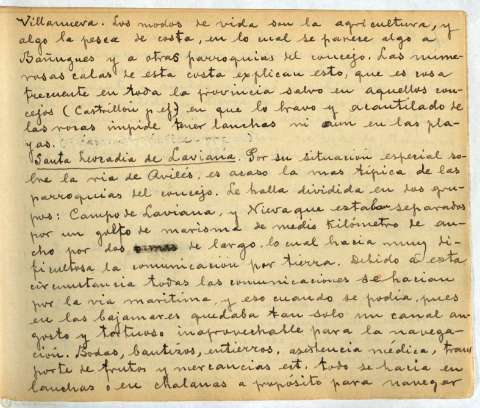 Villanueva. Los modos de vida son la agricultura, y
algo la pesca de costa, en lo cual se parece algo a
Bañugues y a otras parroquias del concejo. Las nume-
rosas calas de esta costa explican esto, que es cosa
frecuente en toda la provincia salvo en aquellos con-
cejos (Castrillón p ej) en que lo bravo y acantilado de
las rocas impide tener lanchas ni aun en las pla-
yas.
Santa Leocadia de Laviana. Por su situación especial so-
bre la ria de Avilés, es acaso la mas típica de las
parroquias del concejo. Se halla dividida en dos gru-
pos: Campo de Laviana, y Nieva que estaban separados
por un golfo de marisma de medio Kilómetro de an-
cho por dos de largo. lo cual hacia muy di-
ficultosa la comunicacion por tierra. Debido a esta
circunstancia todas las comunicaciones se hacian
por la via maritima, y eso cuando se podia, pues
en las bajamares quedaba tan solo un canal an-
gosto y tortuoso inaprovechable para la navega-
ción. Bodas, bautizos, entierros, asistencia médica, trans
porte de frutos y mercancias est. todo se hacia en
lanchas ó en chalanas a propósito para navegar